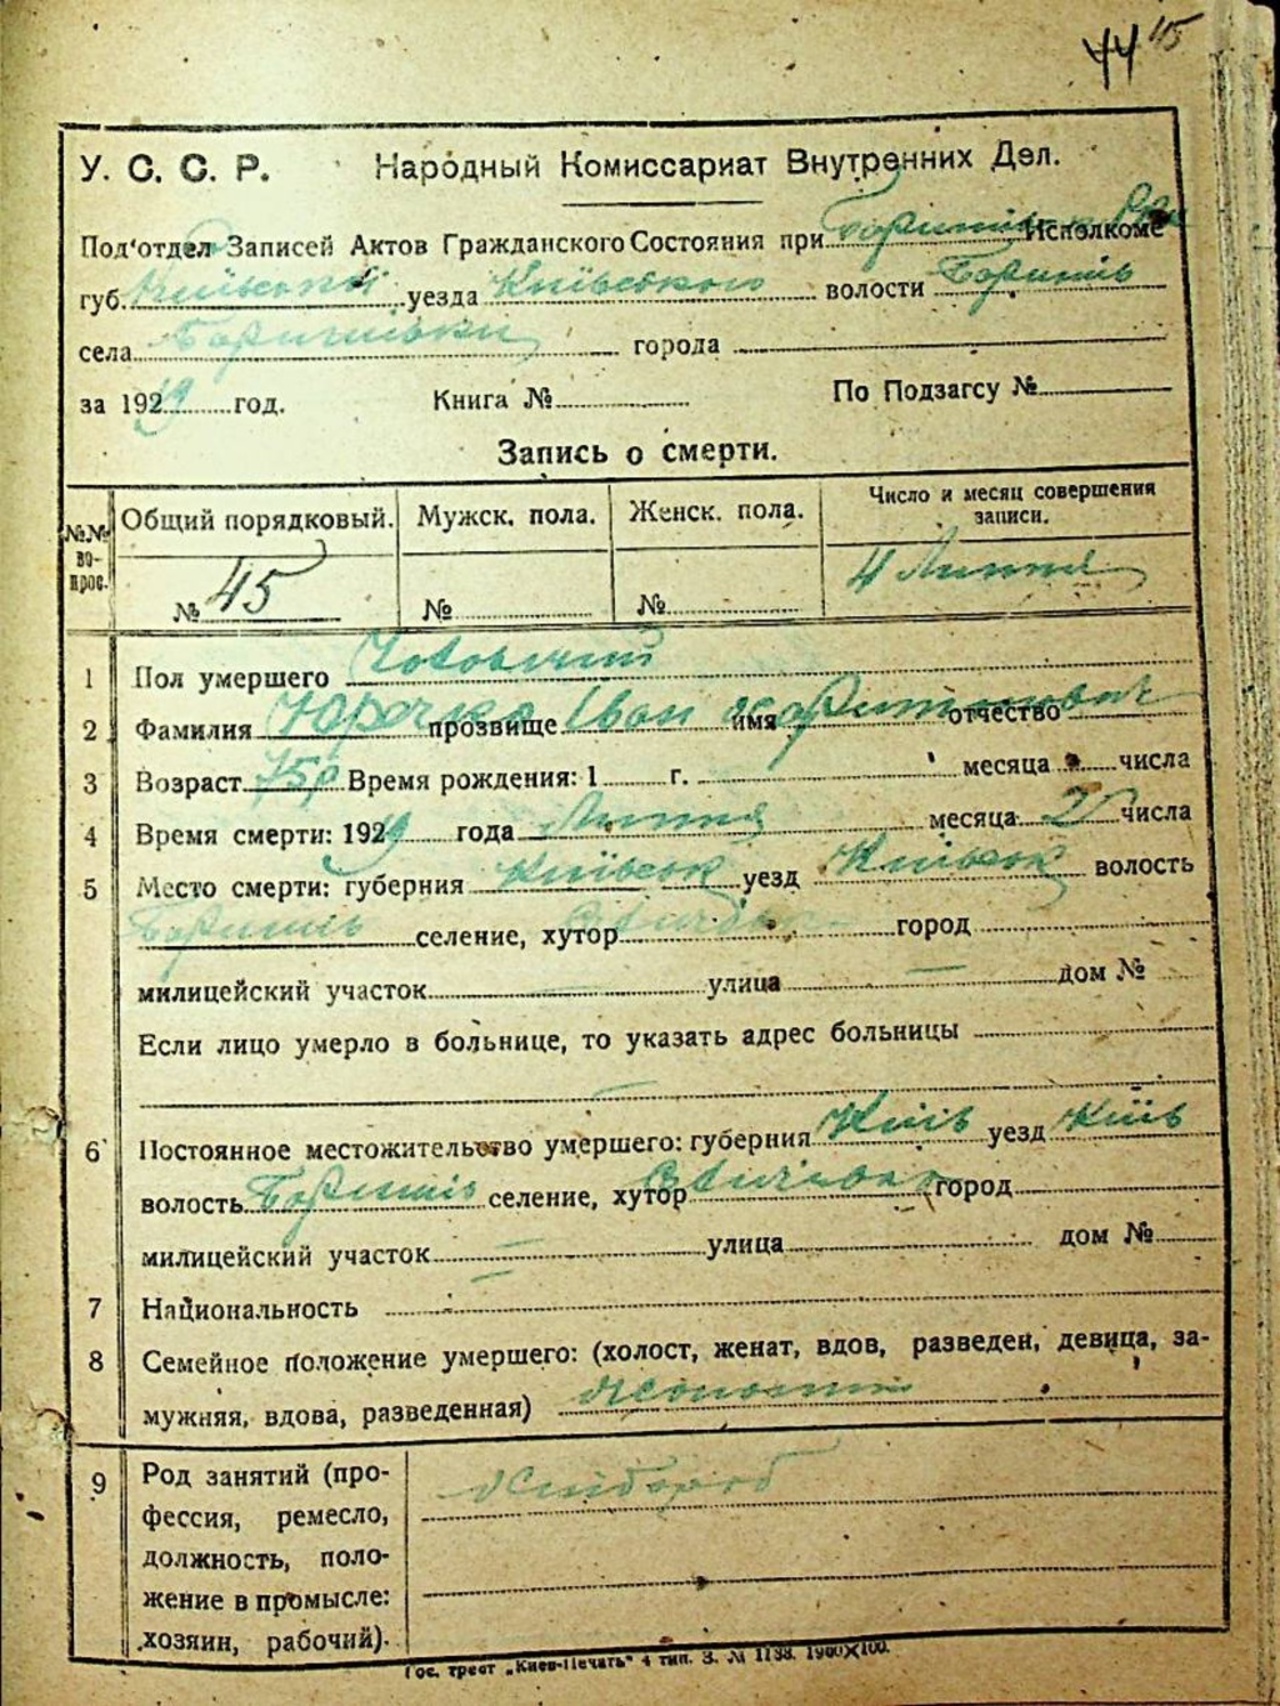 44 115
У. С. С. Р. Народный Комиссариат Внутренних Дел.
Под'отдел Записей Актов Гражданского Состояния при Исполкоме
губ. Київської уезда Київського волости Бориспіль
села города
за 1929 год. Книга № По Подзагсу №
Запись о смерти.
№№ вопрос. Общий порядковый. Мужск. пола. Женск. пола. Число и месяц совершения записи.
№ 45 № № 4 Липня
1 Пол умершего Чоловічий
2 Фамилия прозвище Іван имя Харитонович отчество
3 Возраст 75 р Время рождения: 1 г. месяца числа
4 Время смерти: 1929 года Липня месяца 2 числа
5 Место смерти: губерния Київськ уезд Київськ волость
Бориспіль селение, хутор город
милицейский участок — улица — дом №
Если лицо умерло в больнице, то указать адрес больницы
—
6 Постоянное местожительство умершего: губерния Київ уезд Київ
волость Бориспіль селение, хутор город
милицейский участок — улица дом №
7 Национальность —
8 Семейное положение умершего: (холост, женат, вдов, разведен, девица, за-
мужняя, вдова, разведенная)
9 Род занятий (про- Хлібороб
фессия, ремесло,
должность, поло-
жение в промысле:
хозяин, рабочий).
Гос. трест „Киев-Печать" 4 тип. З. № 1138. 1900×100.